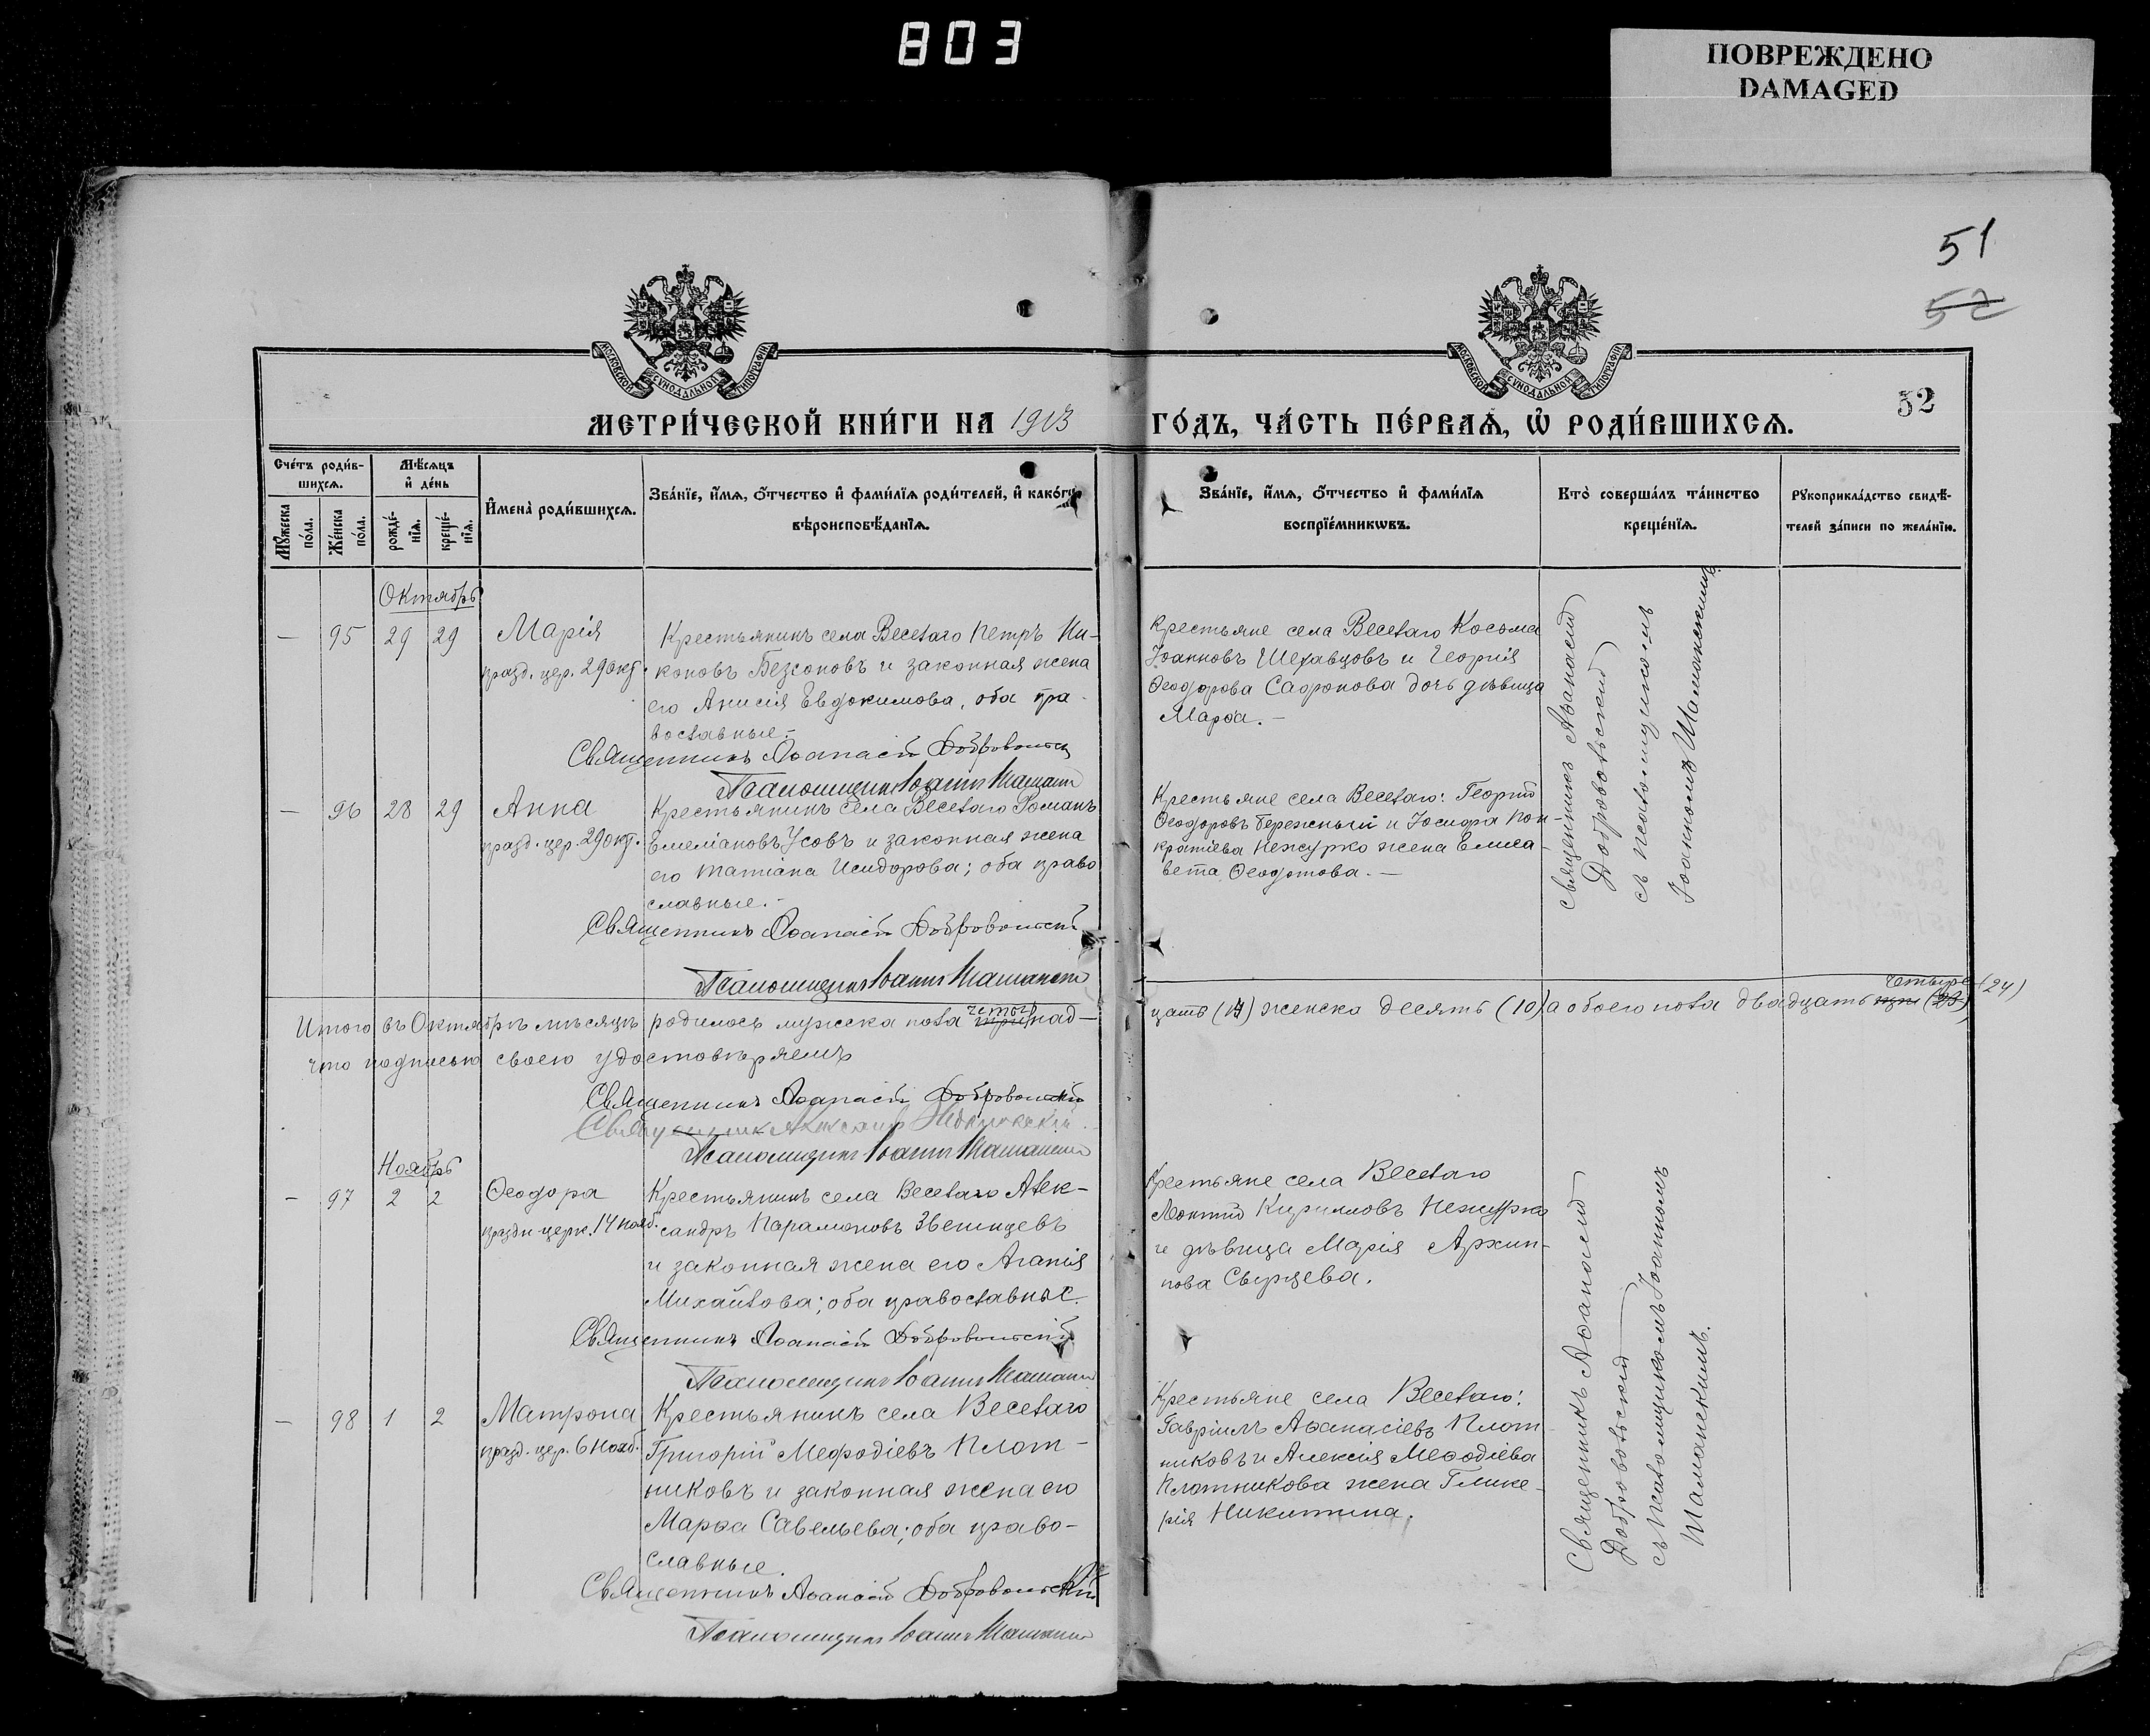 803
ПОВРЕЖДЕНО
DAMAGED
51
52
32
МОСКОВСКОЙ СѴНОДАЛЬНОЙ ТИПОГРАФІИ
МОСКОВСКОЙ СѴНОДАЛЬНОЙ ТИПОГРАФІИ
МЕТРИ́ЧЕСКОЙ КНИ́ГИ НА 1913 ГО́ДЪ, ЧА́СТЬ ПЕ́РВАѦ, Ѡ҆ РОДИ́ВШИХСѦ.
Сче́тъ роди́в-
шихсѧ.
Мꙋ́жеска по́ла.
Же́нска по́ла.
Мѣ́сѧцъ и҆ де́нь
рожде́-
нїѧ.
креще́-
нїѧ.
И҆мена̀ роди́вшихсѧ.
Зва́нїе, и҆́мѧ, ѻ҆́тчество и҆ фами́лїѧ роди́телей, и҆ како́гѡ
вѣроисповѣ́данїѧ.
Зва́нїе, и҆́мѧ, ѻ҆́тчество и҆ фами́лїѧ
воспрїе́мникѡвъ.
Кто̀ соверша́лъ та́инство
креще́нїѧ.
Рꙋкоприкла́дство свидѣ́-
телей за́писи по жела́нїю.
Октябрь
— 95 29 29
Марія
празд. цер. 29 окт.
Крестьянинъ села Веселаго Петръ Ни-
коновъ Безсоновъ и законная жена
его Анисія Евдокимова, оба пра-
вославные.—
Священникъ Аѳанасій Добровольскій
Псаломщикъ Іоаннъ Шаманскій
Крестьяне села Веселаго Косьма
Іоанновъ Шехавцовъ и Георгія
Ѳеодорова Сафонова дочь дѣвица
Марѳа.—
Священникъ Аѳанасій
Добровольскій
съ псаломщикомъ
Іоанномъ Шаманскимъ.
— 96 28 29
Анна
празд. цер. 29 окт.
Крестьянинъ села Веселаго Романъ
Емеліановъ Усовъ и законная жена
его Татіана Исидорова; оба право
славные.—
Священникъ Аѳанасій Добровольскій
Псаломщикъ Іоаннъ Шаманскій
Крестьяне села Веселаго: Георгій
Ѳеодоровъ Бережный и Іосифа Пон-
кратіева Нежурко жена Елиса
вета Ѳеодотова.—
Итого въ Октябрѣ мѣсяцѣ родилось мужска пола четыр три над-
цать (14) женска десять (10) а обоего пола двадцать четыре три (23) (24)
что подписью своею удостовѣряемъ
Священникъ Аѳанасій Добровольскій
Священник Александр
Псаломщикъ Іоаннъ Шаманскій
Ноябрь
— 97 2 2
Ѳеодора
праздн. церк. 14 нояб.
Крестьянинъ села Веселаго Алек-
сандръ Парамоновъ Звегинцевъ
и законная жена его Агапія
Михайлова; оба православные.
Священникъ Аѳанасій Добровольскій
Псаломщикъ Іоаннъ Шаманскій
Крестьяне села Веселаго
Леонтій Кирилловъ Нежурко
и дѣвица Марія Архип-
пова Сырцева.
Священникъ Аѳанасій
Добровольскій
съ псаломщикомъ Іоанномъ
Шаманскимъ.
— 98 1 2
Матрона
празд. цер. 6 Нояб.
Крестьянинъ села Веселаго
Григорій Меѳодіевъ Плот-
никовъ и законная жена его
Марѳа Савельева; оба право-
славные.
Священникъ Аѳанасій Добровольскій
Псаломщикъ Іоаннъ Шаманскій
Крестьяне села Веселаго:
Гавріилъ Аѳанасіевъ Плот
никовъ и Алексія Меѳодіева
Плотникова жена Глике-
рія Никитина.